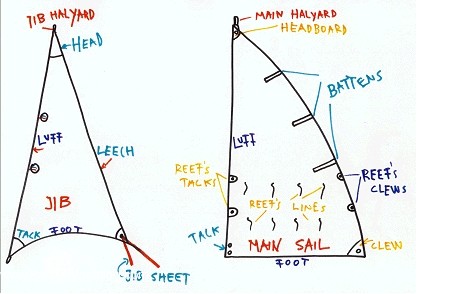 JIB HALYARD
HEAD
LUFF
LEECH
JIB
TACK
FOOT
JIB SHEET
MAIN HALYARD
HEADBOARD
BATTENS
LUFF
REEF'S
TACKS
REEF'S
CLEWS
REEF'S LINES
TACK
MAIN SAIL
CLEW
FOOT